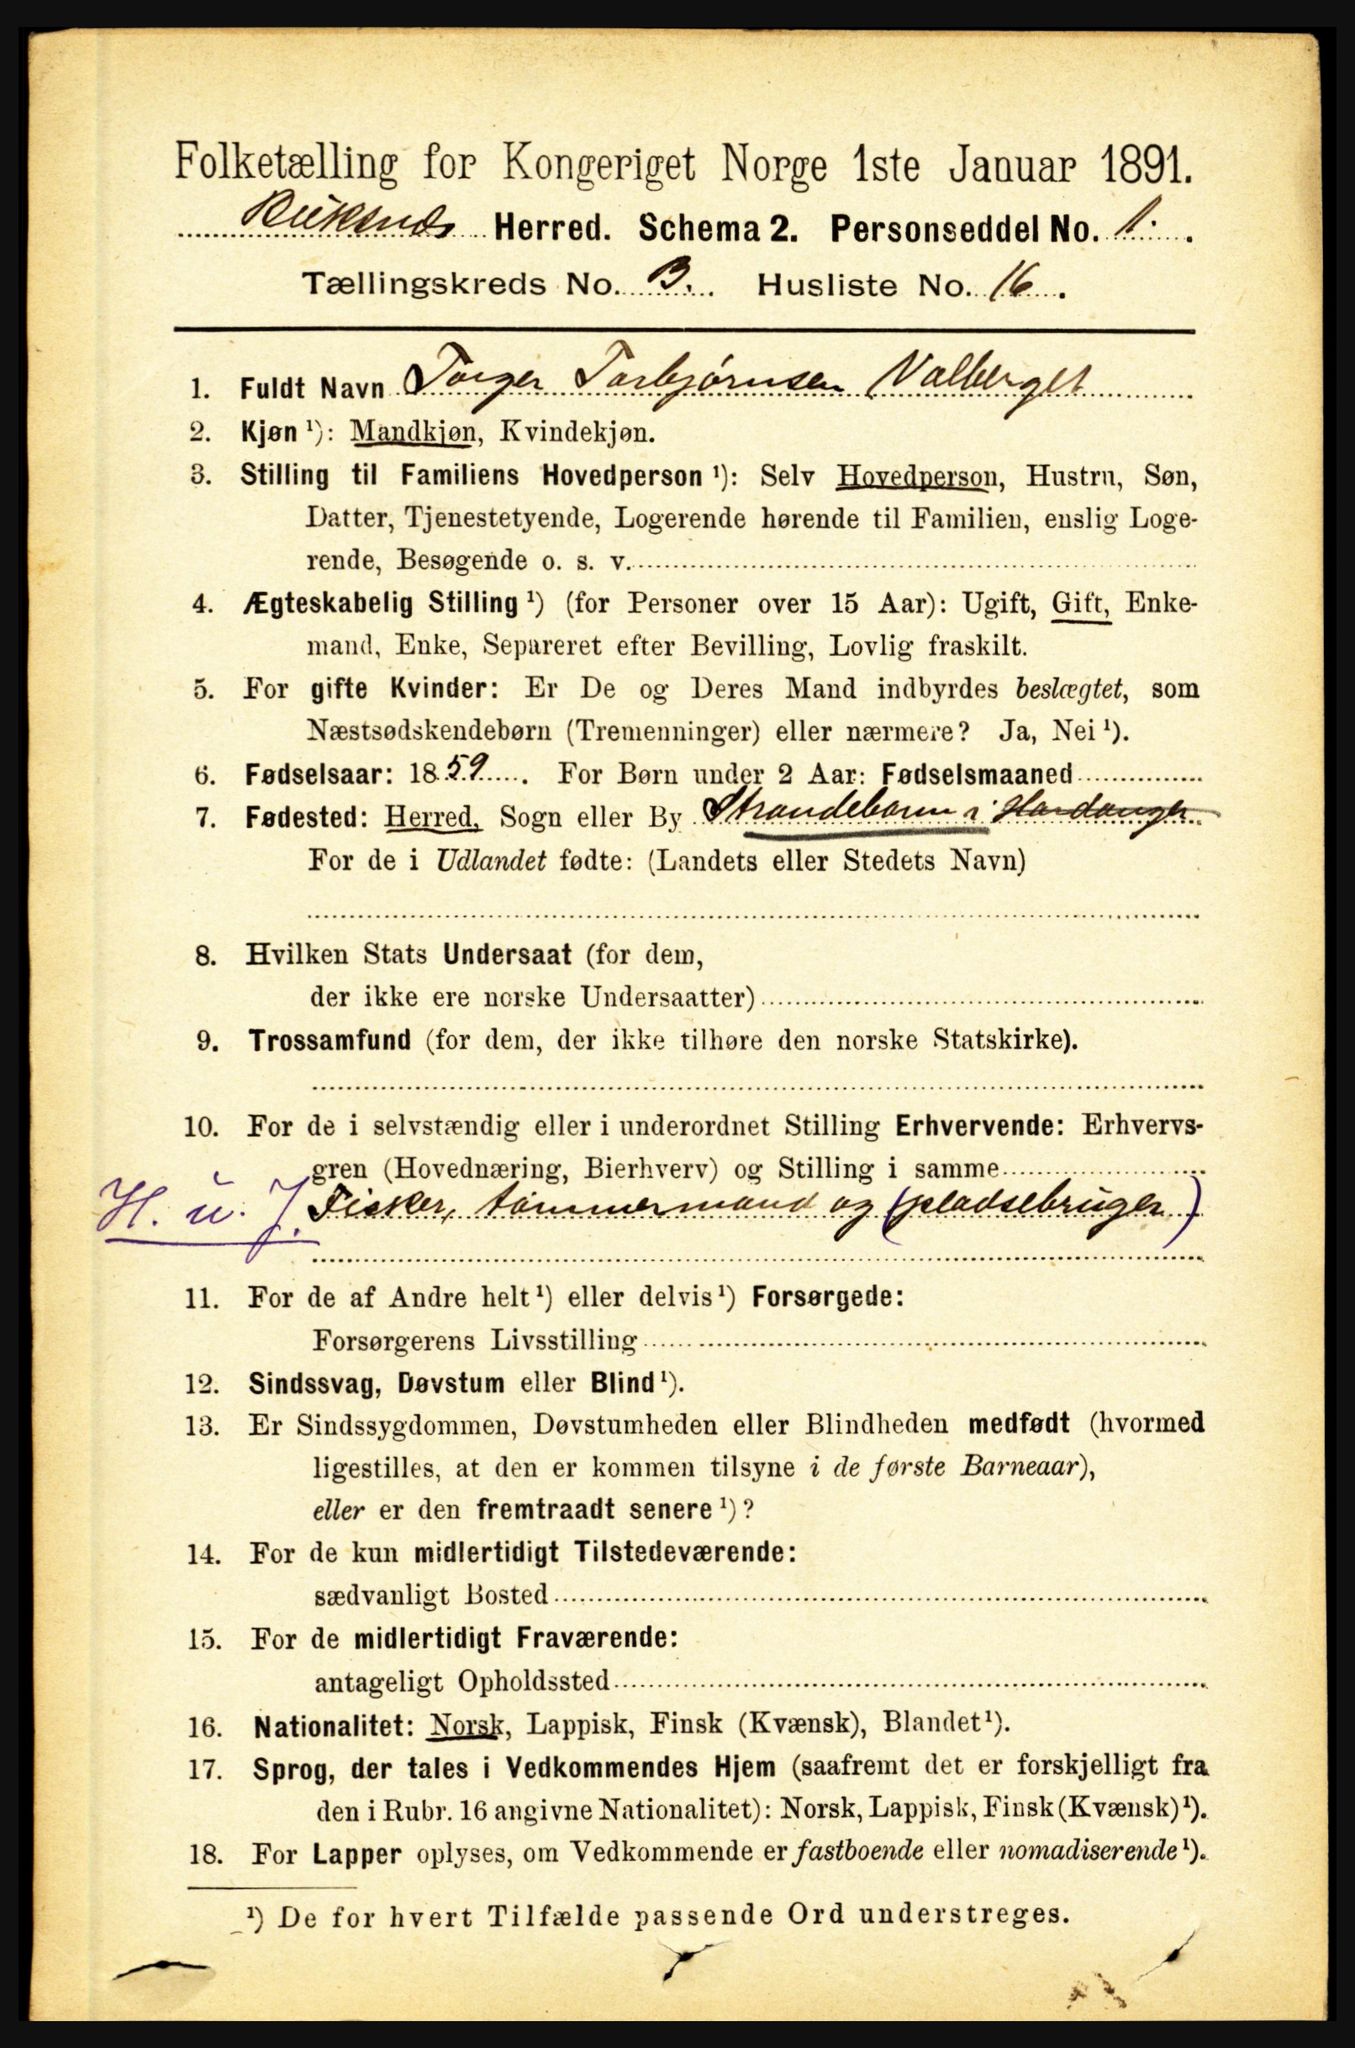 Folketælling for Kongeriget Norge 1ste Januar 1891.
Herred. Schema 2. Personseddel No. 1.
Tællingskreds No. 3. Husliste No. 16.
1. Fuldt Navn Torger Torbjørnsen Valberget
2. Kjøn ¹): Mandkjøn, Kvindekjøn.
3. Stilling til Familiens Hovedperson ¹): Selv Hovedperson, Hustru, Søn,
Datter, Tjenestetyende, Logerende hørende til Familien, enslig Loge-
rende, Besøgende o. s. v.
4. Ægteskabelig Stilling ¹) (for Personer over 15 Aar): Ugift, Gift, Enke-
mand, Enke, Separeret efter Bevilling, Lovlig fraskilt.
5. For gifte Kvinder: Er De og Deres Mand indbyrdes beslægtet, som
Næstsødskendebørn (Tremenninger) eller nærmere? Ja, Nei ¹).
6. Fødselsaar: 1859. For Børn under 2 Aar: Fødselsmaaned
7. Fødested: Herred, Sogn eller By Strandebarm i Hardanger
For de i Udlandet fødte: (Landets eller Stedets Navn)
8. Hvilken Stats Undersaat (for dem,
der ikke ere norske Undersaatter)
9. Trossamfund (for dem, der ikke tilhøre den norske Statskirke).
10. For de i selvstændig eller i underordnet Stilling Erhvervende: Erhvervs-
gren (Hovednæring, Bierhverv) og Stilling i samme
H. u. J. Fisker, tømmermand og (pladsebruger)
11. For de af Andre helt ¹) eller delvis ¹) Forsørgede:
Forsørgerens Livsstilling
12. Sindssvag, Døvstum eller Blind ¹).
13. Er Sindssygdommen, Døvstumheden eller Blindheden medfødt (hvormed
ligestilles, at den er kommen tilsyne i de første Barneaar),
eller er den fremtraadt senere ¹)?
14. For de kun midlertidigt Tilstedeværende:
sædvanligt Bosted
15. For de midlertidigt Fraværende:
antageligt Opholdssted
16. Nationalitet: Norsk, Lappisk, Finsk (Kvænsk), Blandet ¹).
17. Sprog, der tales i Vedkommendes Hjem (saafremt det er forskjelligt fra
den i Rubr. 16 angivne Nationalitet): Norsk, Lappisk, Finsk (Kvænsk) ¹).
18. For Lapper oplyses, om Vedkommende er fastboende eller nomadiserende ¹).
¹) De for hvert Tilfælde passende Ord understreges.